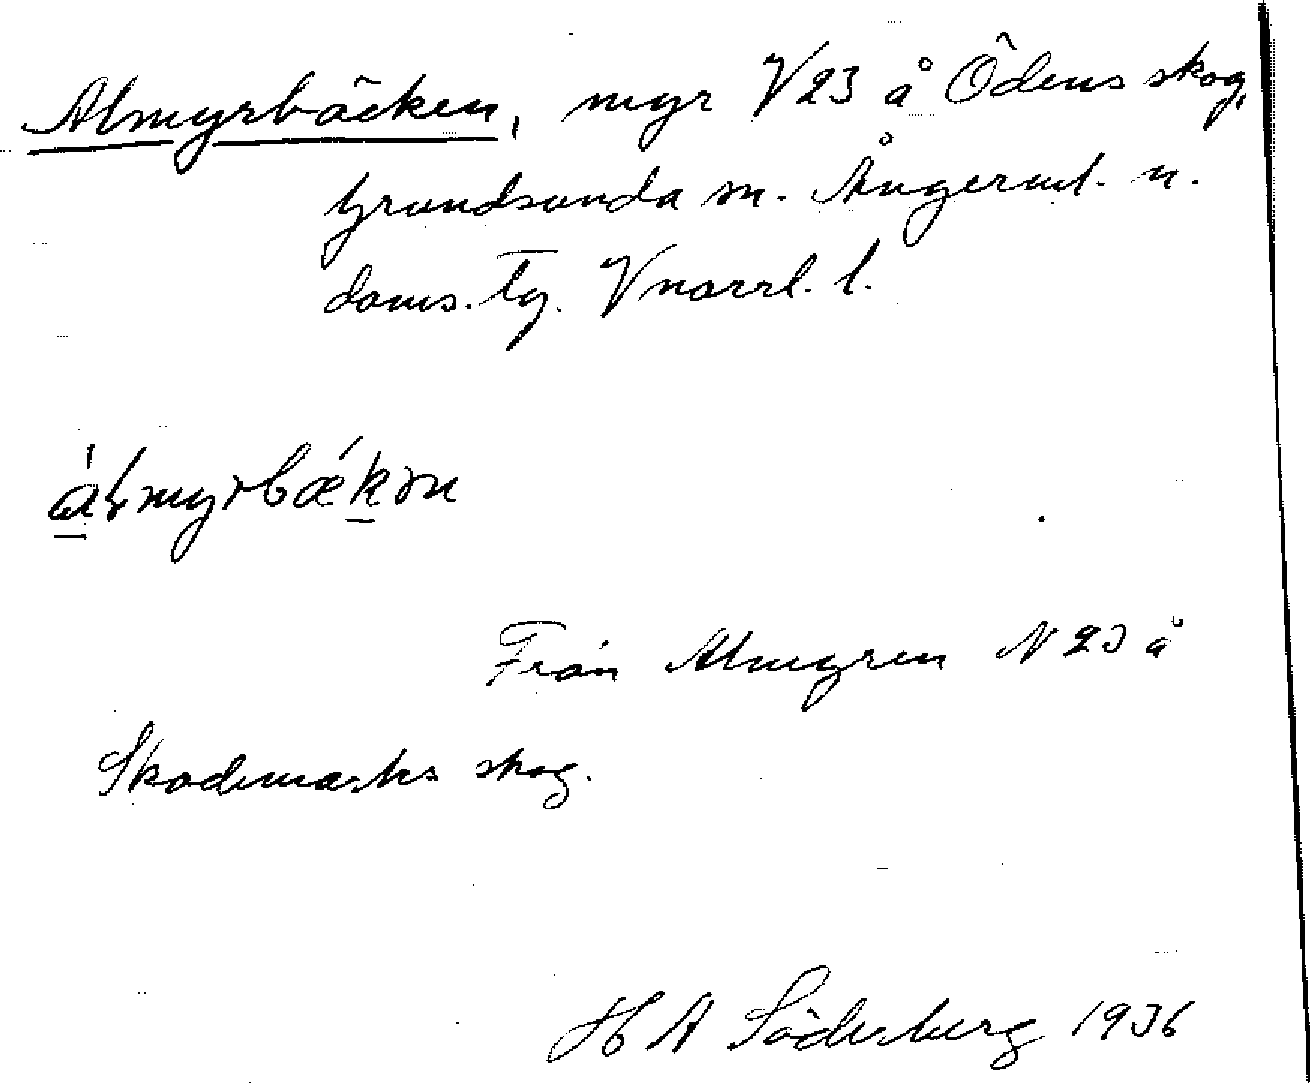 Almyrbäcken, myr V23 å Ödens skog,
Grundsunda sn. Ångerml. n.
doms. tg. Vnorrl. l.
àlmyrbǽkən
Från Almyren N23 å
Skademarks skog.
H A Söderberg 1936